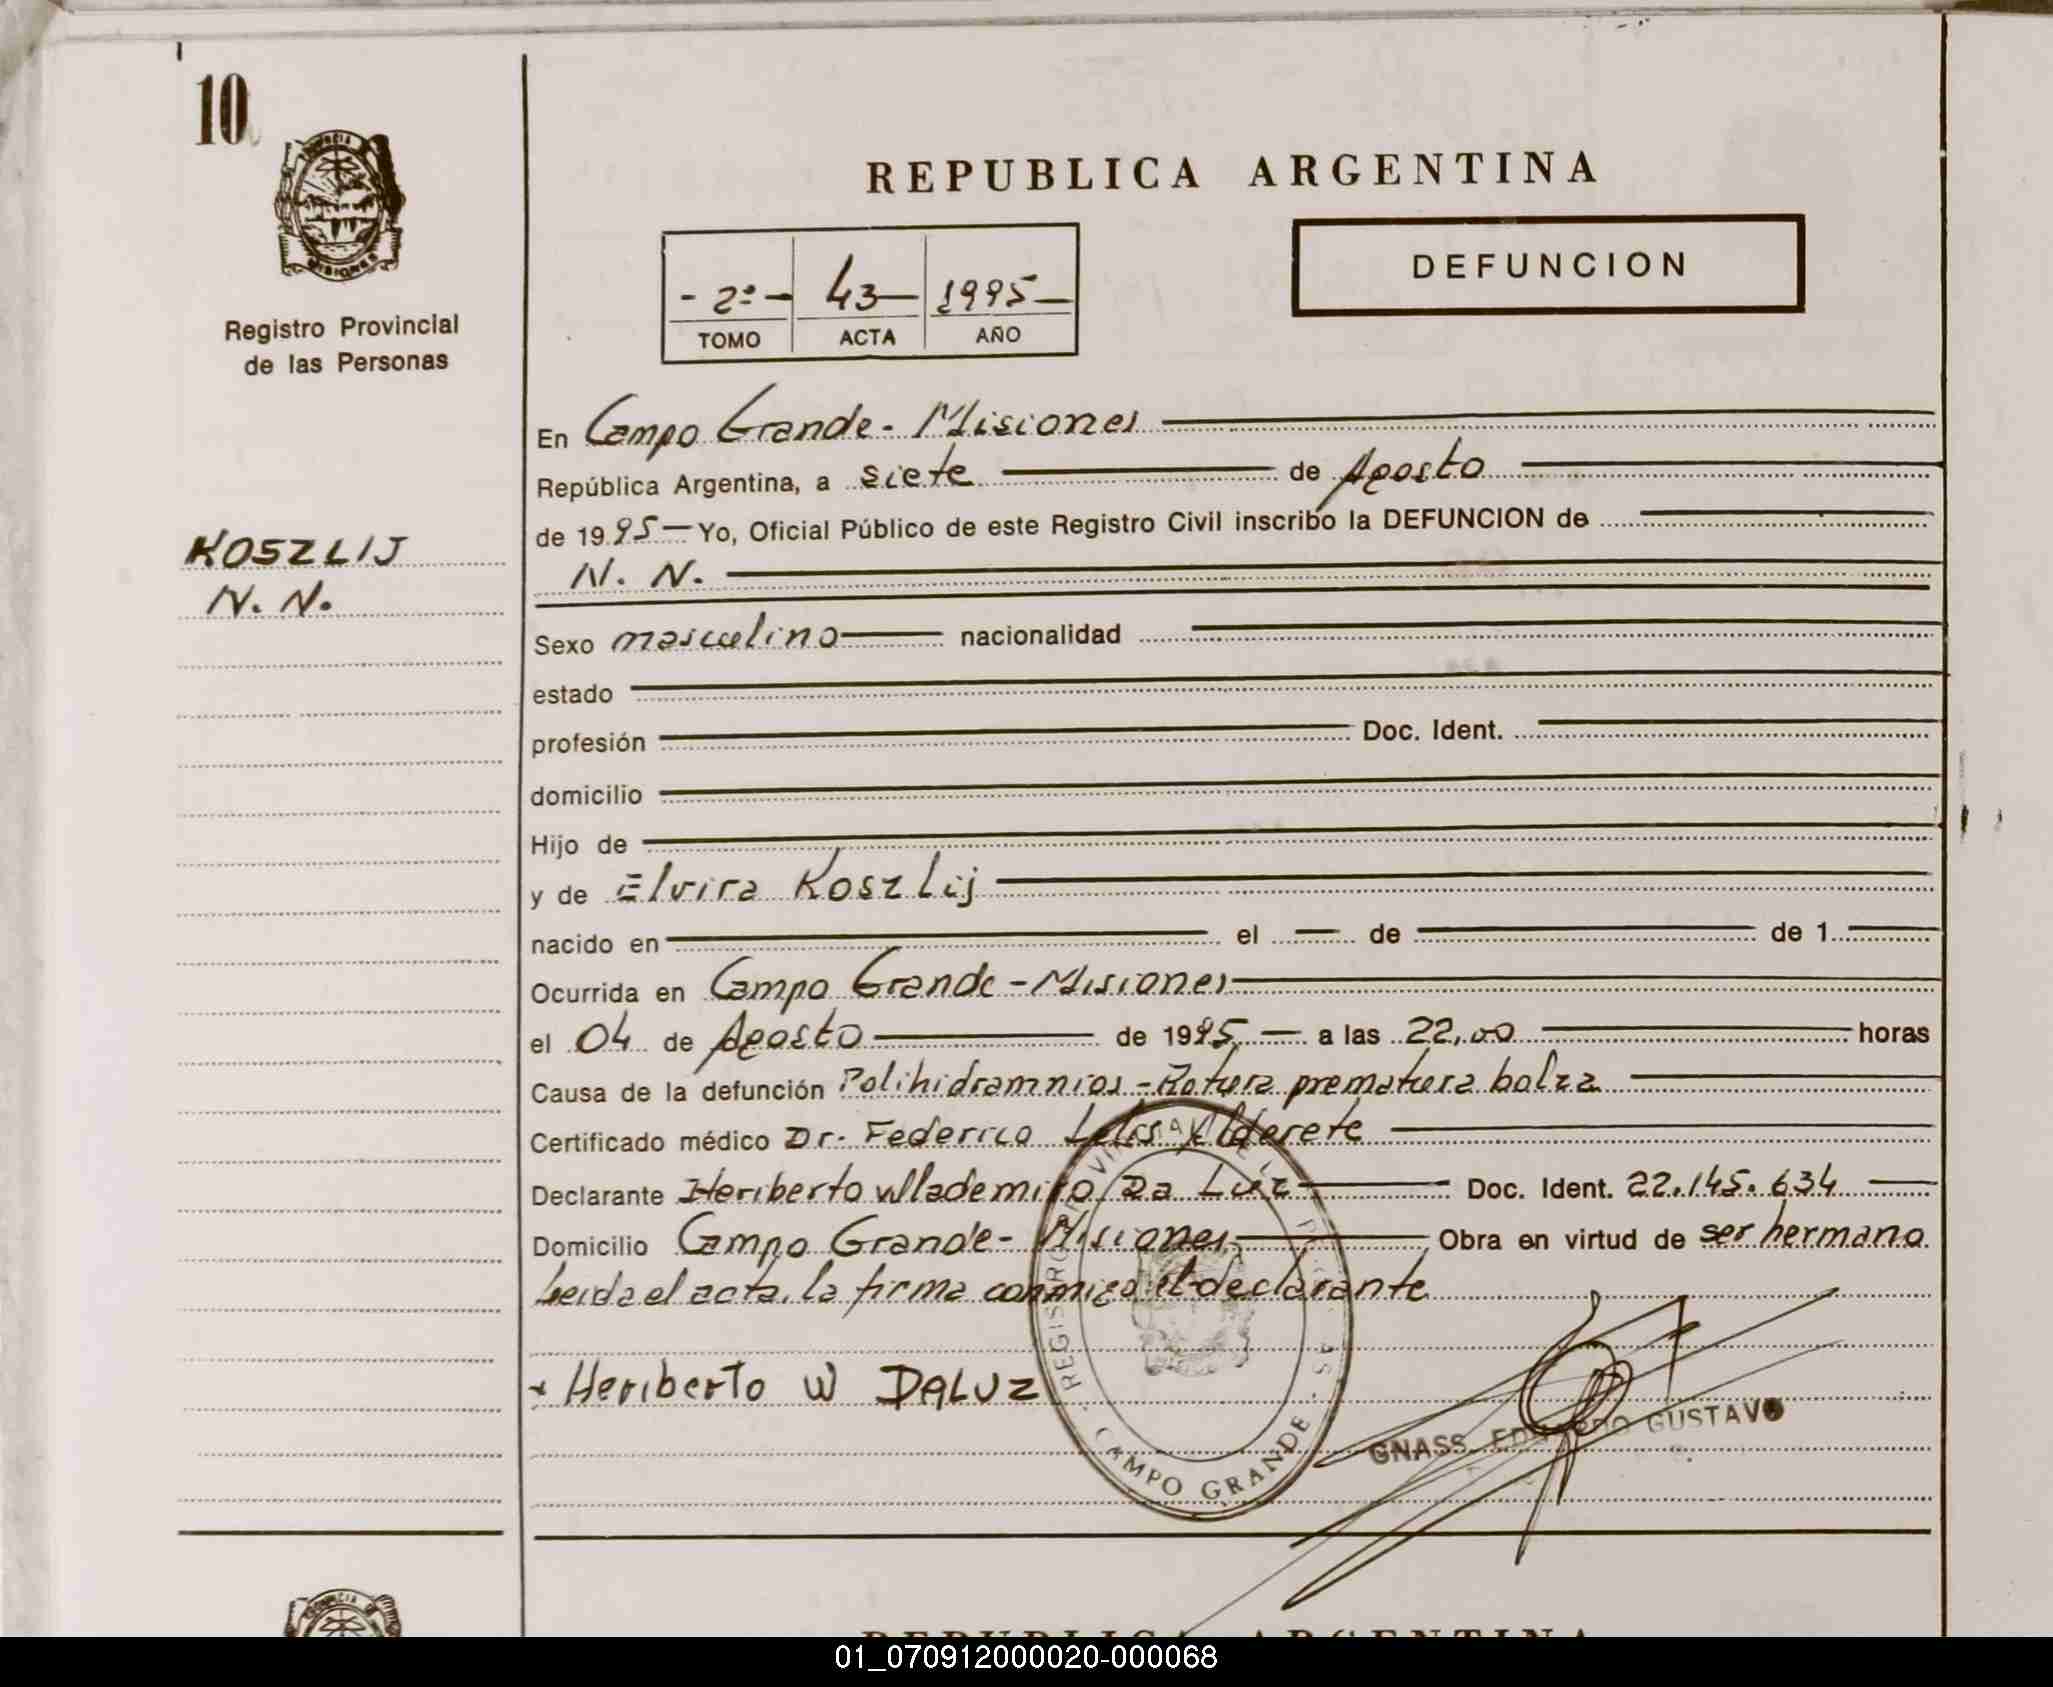 10
PROVINCIA DE
MISIONES
Registro Provincial
de las Personas
KOSZLIJ
N. N.
REPUBLICA ARGENTINA
DEFUNCION
- 2º - 43 1995
TOMO ACTA AÑO
En Campo Grande - Misiones
República Argentina, a siete de Agosto
de 1995 Yo, Oficial Público de este Registro Civil inscribo la DEFUNCION de
N. N.
Sexo masculino nacionalidad
estado
profesión Doc. Ident.
domicilio
Hijo de
y de Elvira Koszlij
nacido en el de de 1
Ocurrida en Campo Grande - Misiones
el 04 de Agosto de 1995 a las 22,00 horas
Causa de la defunción Polihidramnios - Rotura prematura bolza
Certificado médico Dr. Federico Alderete
Declarante Heriberto Wlademiro Da Luz Doc. Ident. 22.145.634
Domicilio Campo Grande - Misiones Obra en virtud de ser hermano
Leida el acta, la firma conmigo el declarante
Heriberto W DALUZ
REGISTRO PROVINCIAL DE LAS
CAMPO GRANDE
GNASS EDUARDO GUSTAVO
REPUBLICA ARGENTINA
01_070912000020-000068